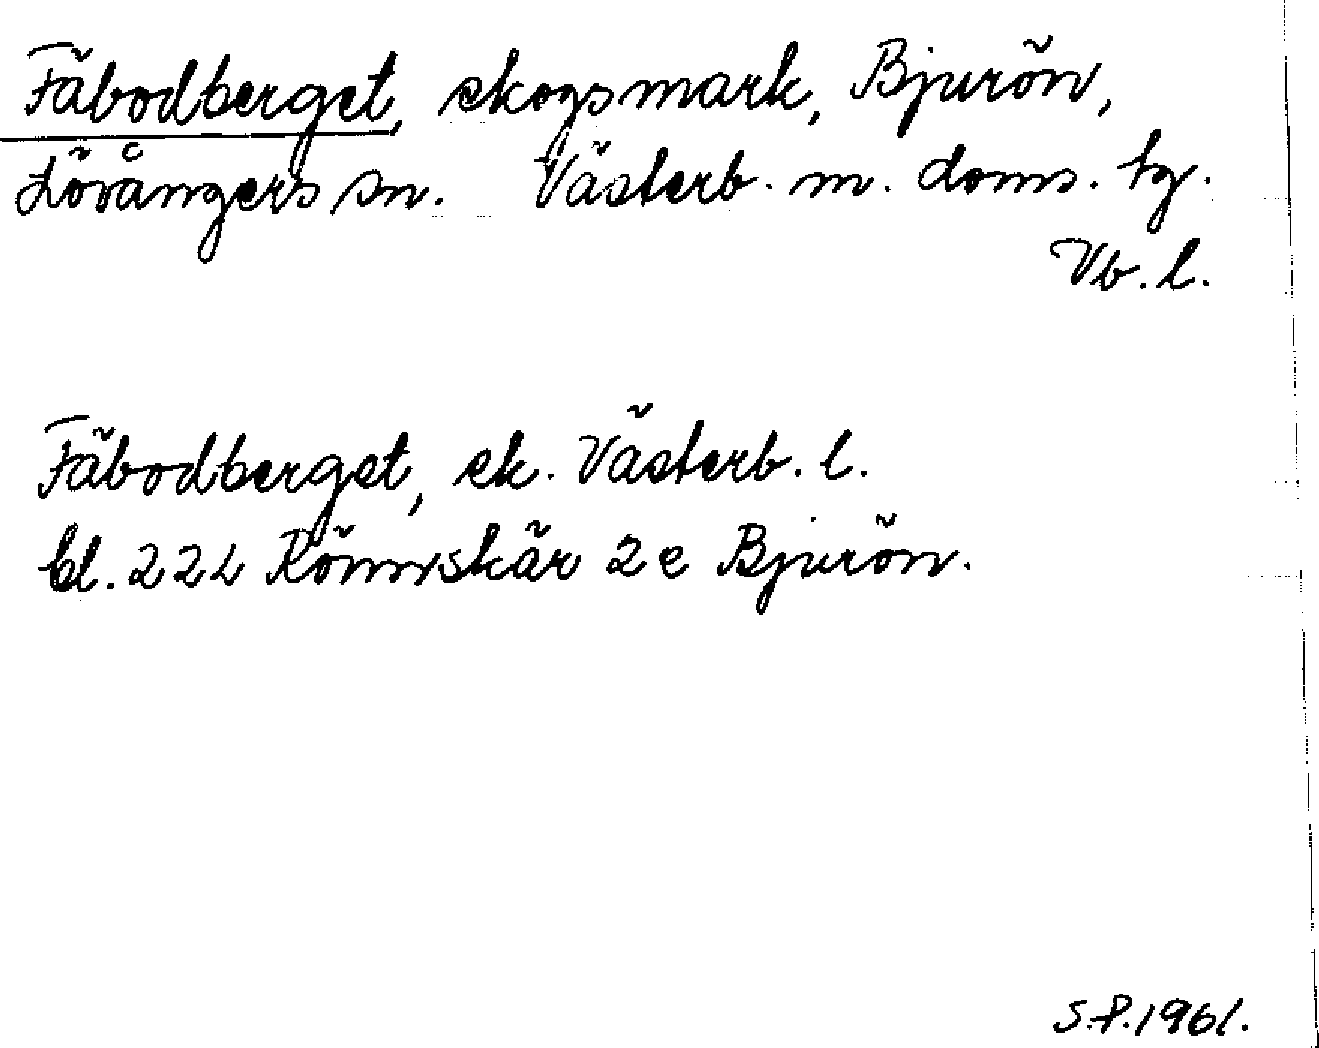 Fäbodberget, skogsmark, Bjurön,
Lövångers sn. Västerb. m. doms. tg.
Vb. l.
Fäbodberget, ek. Västerb. l.
bl. 22L Rönnskär 2e Bjurön.
S.P. 1961.